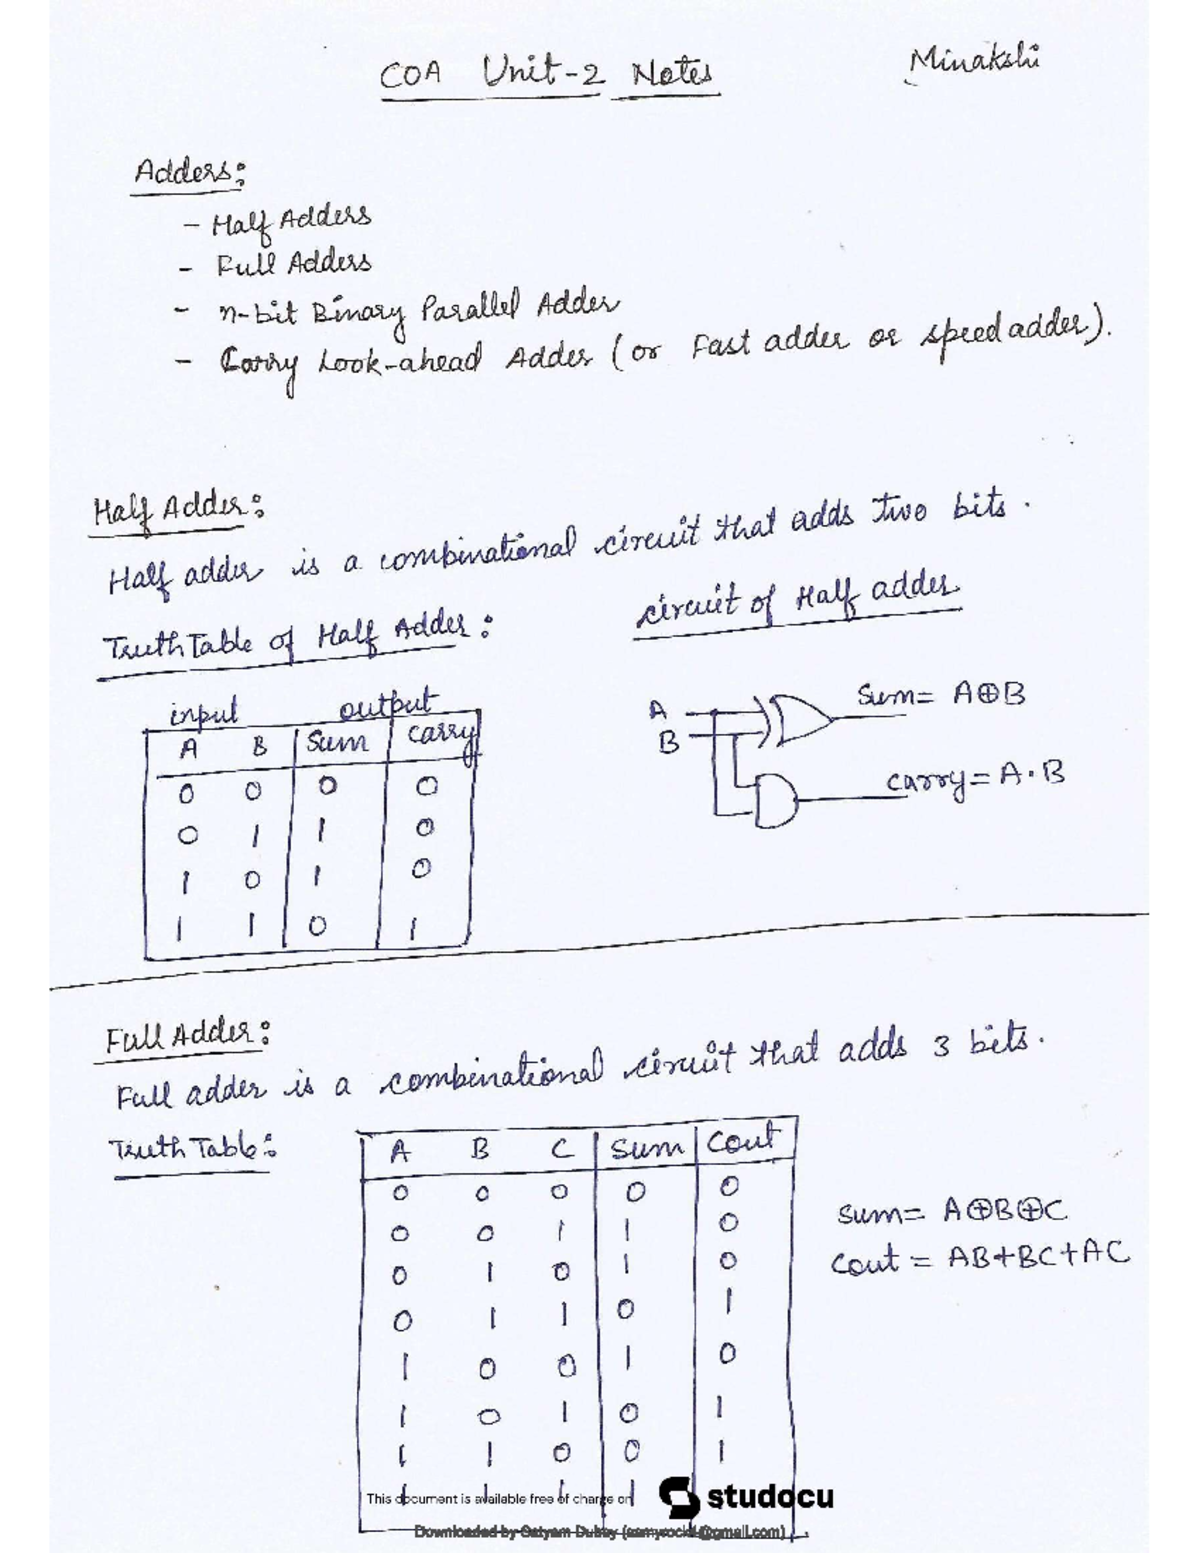 COA Unit-2 Notes
Minakshi
Adders:
- Half Adders
- Full Adders
- n-bit Binary Parallel Adder
- Carry Look-ahead Adder (or Fast adder or speed adder).
Half Adder:
Half adder is a combinational circuit that adds two bits.
Truth Table of Half Adder:
input output
A B Sum carry
0 0 0 0
0 1 1 0
1 0 1 0
1 1 0 1
circuit of Half adder
A
B
Sum= A⊕B
carry= A·B
Full Adder:
Full adder is a combinational circuit that adds 3 bits.
Truth Table:
A B C Sum Cout
0 0 0 0 0
0 0 1 1 0
0 1 0 1 0
0 1 1 0 1
1 0 0 1 0
1 0 1 0 1
1 1 0 0 1
1 1 1 1
sum= A⊕B⊕C
Cout = AB+BC+AC
This document is available free of charge on
studocu
Downloaded by Satyam Dubey